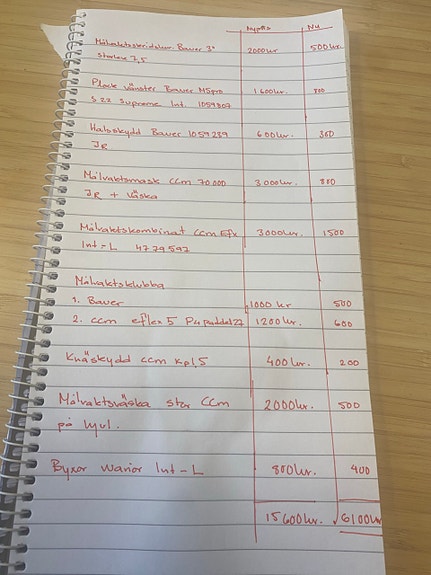 Nypris Nu
Målvaktsskridskor Bauer 3" 2000kr 500kr.
storlek 7,5
Plock vänster Bauer M5pro 1600kr. 800
S22 Supreme Int. 1059307
Halsskydd Bauer 1059239 600kr. 300
JR
Målvaktsmask CCM 70.000 3000kr. 800
JR + väska
Målvaktskombinat CCM Efx 3000kr. 1500
Int-L 4779597
Målvaktsklubba
1. Bauer 1000 kr 500
2. ccm eflex 5 P4 paddel 27 1200kr. 600
Knäskydd CCM Kpl,5 400kr. 200
Målvaktsväska stor CCM 2000kr. 500
på hjul.
Byxor Warior Int-L 800kr. 400
15600kr. 6100kr